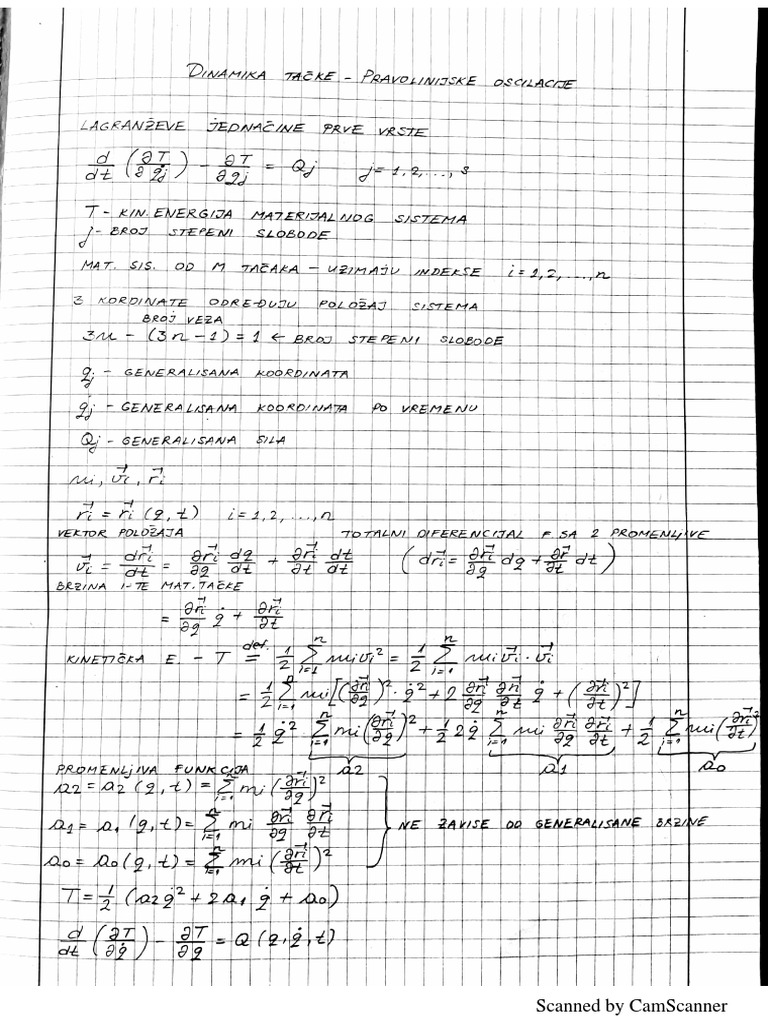 DINAMIKA TAČKE – PRAVOLINIJSKE OSCILACIJE
LAGRANŽEVE JEDNAČINE PRVE VRSTE
d/dt (∂T/∂q̇j) – ∂T/∂qj = Qj j=1,2,...,s
T – KIN. ENERGIJA MATERIJALNOG SISTEMA
j – BROJ STEPENI SLOBODE
MAT. SIS. OD M TAČAKA – UZIMAJU INDEKSE i=1,2,...,n
3 KORDINATE ODREĐUJU POLOŽAJ SISTEMA
BROJ VEZA
3n – (3n–1) = 1 ← BROJ STEPENI SLOBODE
qj – GENERALISANA KOORDINATA
q̇j – GENERALISANA KOORDINATA PO VREMENU
Qj – GENERALISANA SILA
mi, v⃗i, r⃗i
r⃗i = r⃗i (q,t) i=1,2,...,n
VEKTOR POLOŽAJA TOTALNI DIFERENCIJAL F SA 2 PROMENLJIVE
v⃗i = dr⃗i/dt = ∂r⃗i/∂q dq/dt + ∂r⃗i/∂t dt/dt (dr⃗i = ∂r⃗i/∂q dq + ∂r⃗/∂t dt)
BRZINA I-TE MAT. TAČKE
= ∂r⃗i/∂q q̇ + ∂r⃗i/∂t
KINETIČKA E. – T def.= 1/2 n∑i=1 mivi² = 1/2 n∑i=1 miv⃗i · v⃗i
= 1/2 n∑i=1 mi[(∂r⃗i/∂q)² · q̇² + 2 ∂r⃗i/∂q ∂r⃗i/∂t q̇ + (∂r⃗i/∂t)²]
= 1/2 q̇² · n∑i=1 mi(∂r⃗i/∂q)² + 1/2 2q̇ n∑i=1 mi ∂r⃗i/∂q ∂r⃗i/∂t + 1/2 n∑i=1 mi(∂r⃗i/∂t)²
a2 a1 a0
PROMENLJIVA FUNKCIJA
a2 = a2 (q,t) = n∑i=1 mi (∂r⃗i/∂q)²
a1 = a1 (q,t) = n∑i=1 mi ∂r⃗i/∂q ∂r⃗i/∂t } NE ZAVISE OD GENERALISANE BRZINE
a0 = a0 (q,t) = n∑i=1 mi (∂r⃗i/∂t)²
T = 1/2 (a2q̇² + 2a1 q̇ + a0)
d/dt (∂T/∂q̇) – ∂T/∂q = Q (q,q̇,t)
Scanned by CamScanner